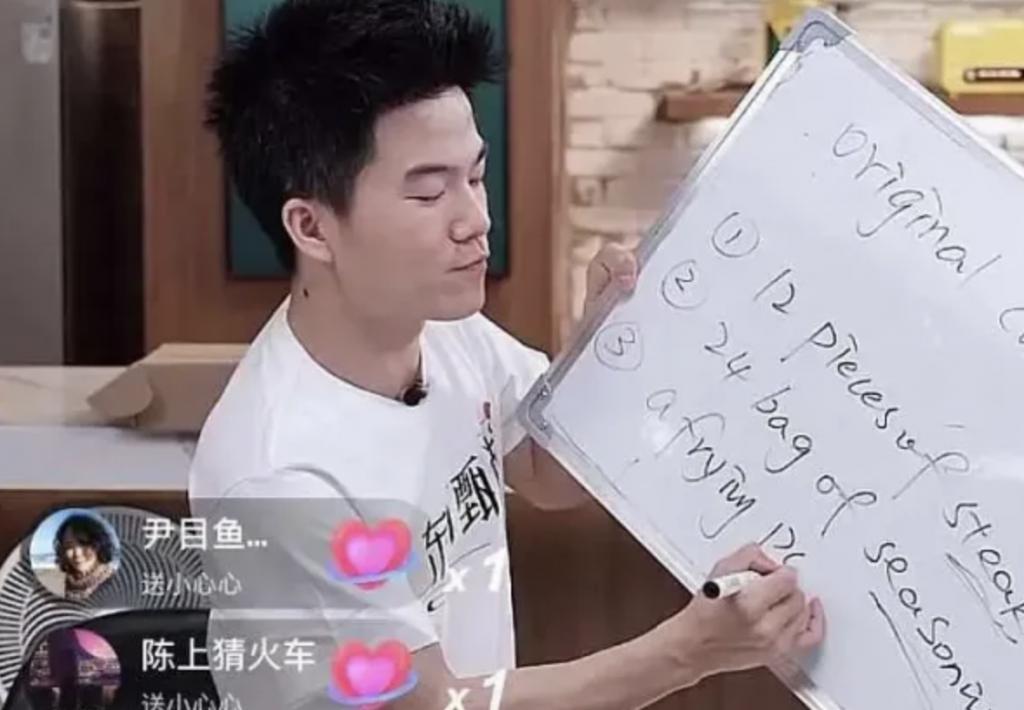 original
① 12 pieces of steak
② 24 bag of seasonin
③ a frying pa
甄
尹目鱼...
送小心心
x1
陈上猜火车
送小心心
x1